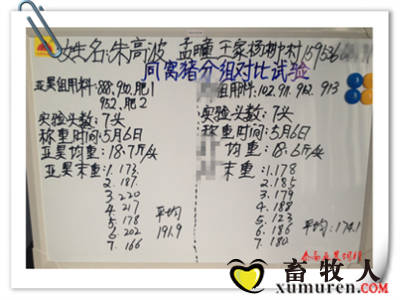 姓名:朱高波 孟疃王家杨柳村 159536
同窝猪分组对比试验
亚昊组用料:888,910,肥1
952,肥2
实验头数:7头
称重时间:5月6日
亚昊均重:18.7斤/头
亚昊末重:1.173
2.187.
3.220
4.217
5.178
6.202
7.166
平均
191.9
组用料:102,911,912,913
实验头数:7头
称重时间:5月6日
均重:18.6斤/头
末重:1.178
2.185
3.179
4.188
5.123
6.186
7.180
平均:174.1
畜牧人
xumuren.com